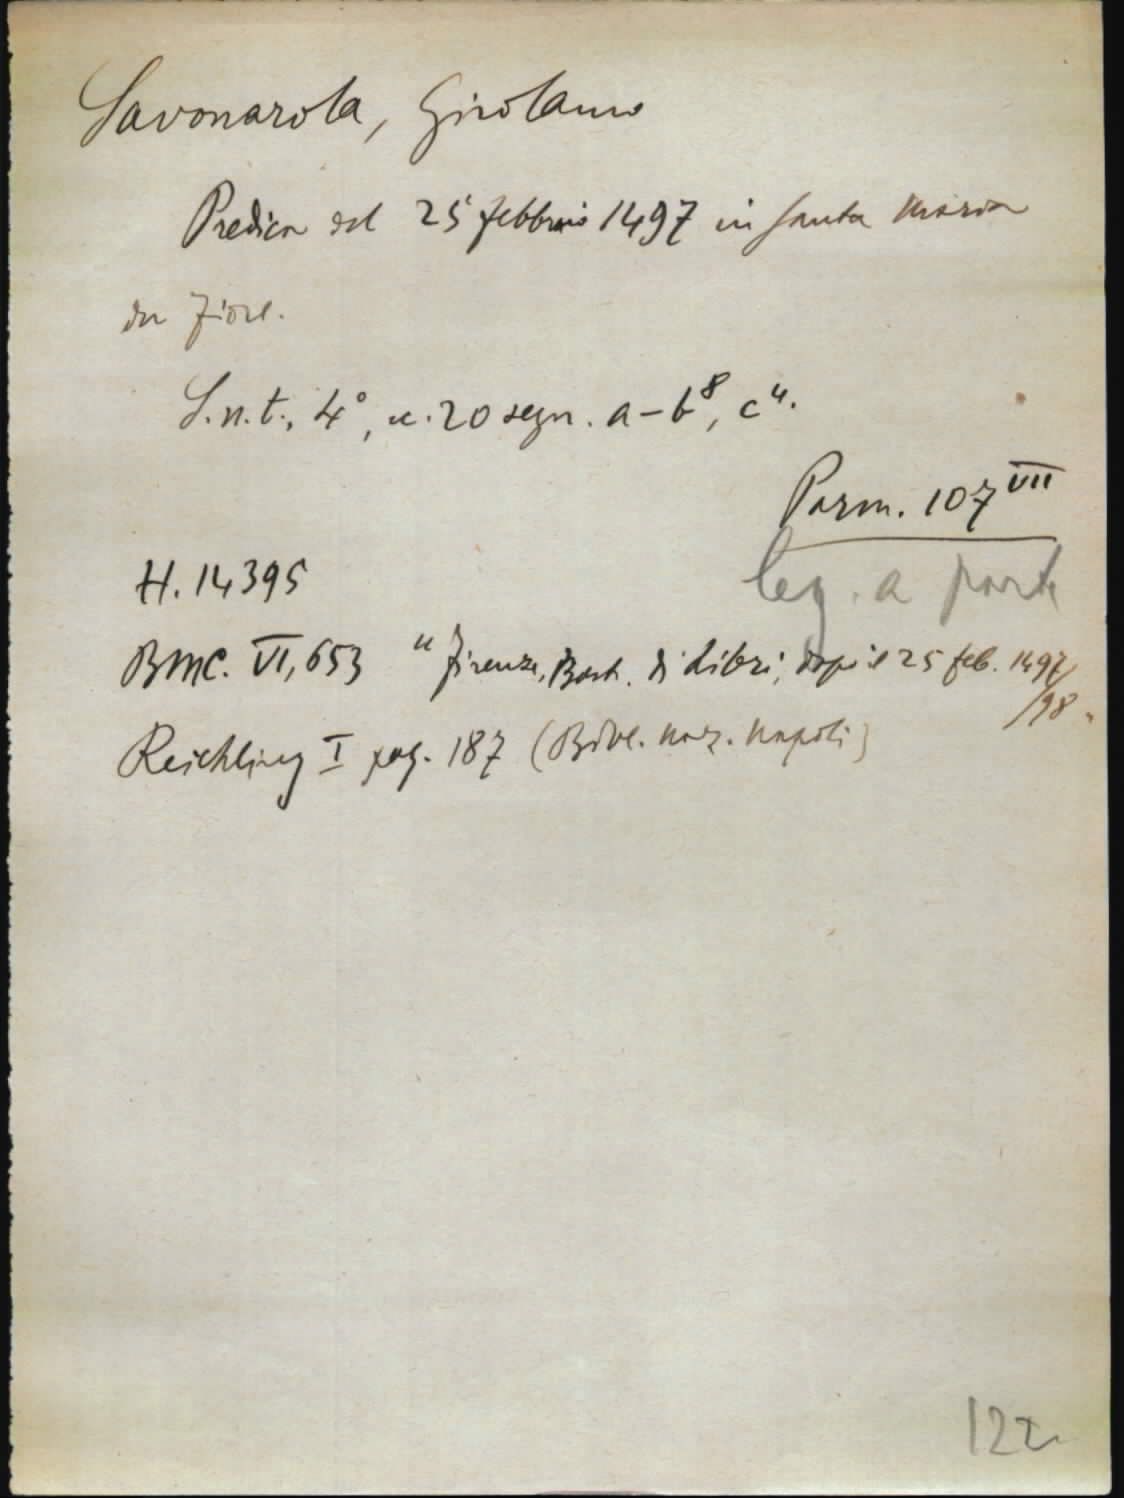 Savonarola, Girolamo
Predica del 25 febbraio 1497 in Santa Maria
del Fiore.
S.n.t., 4°, cc. 20 segn. a-b⁸, c⁴.
Parm. 107 VII
leg. a parte
H. 14395
BMC. VI, 653 "Firenze, Bart. di Libri, dopo il 25 feb. 1497/98"
Reichling I pag. 187 (Bibl. naz. Napoli)
122